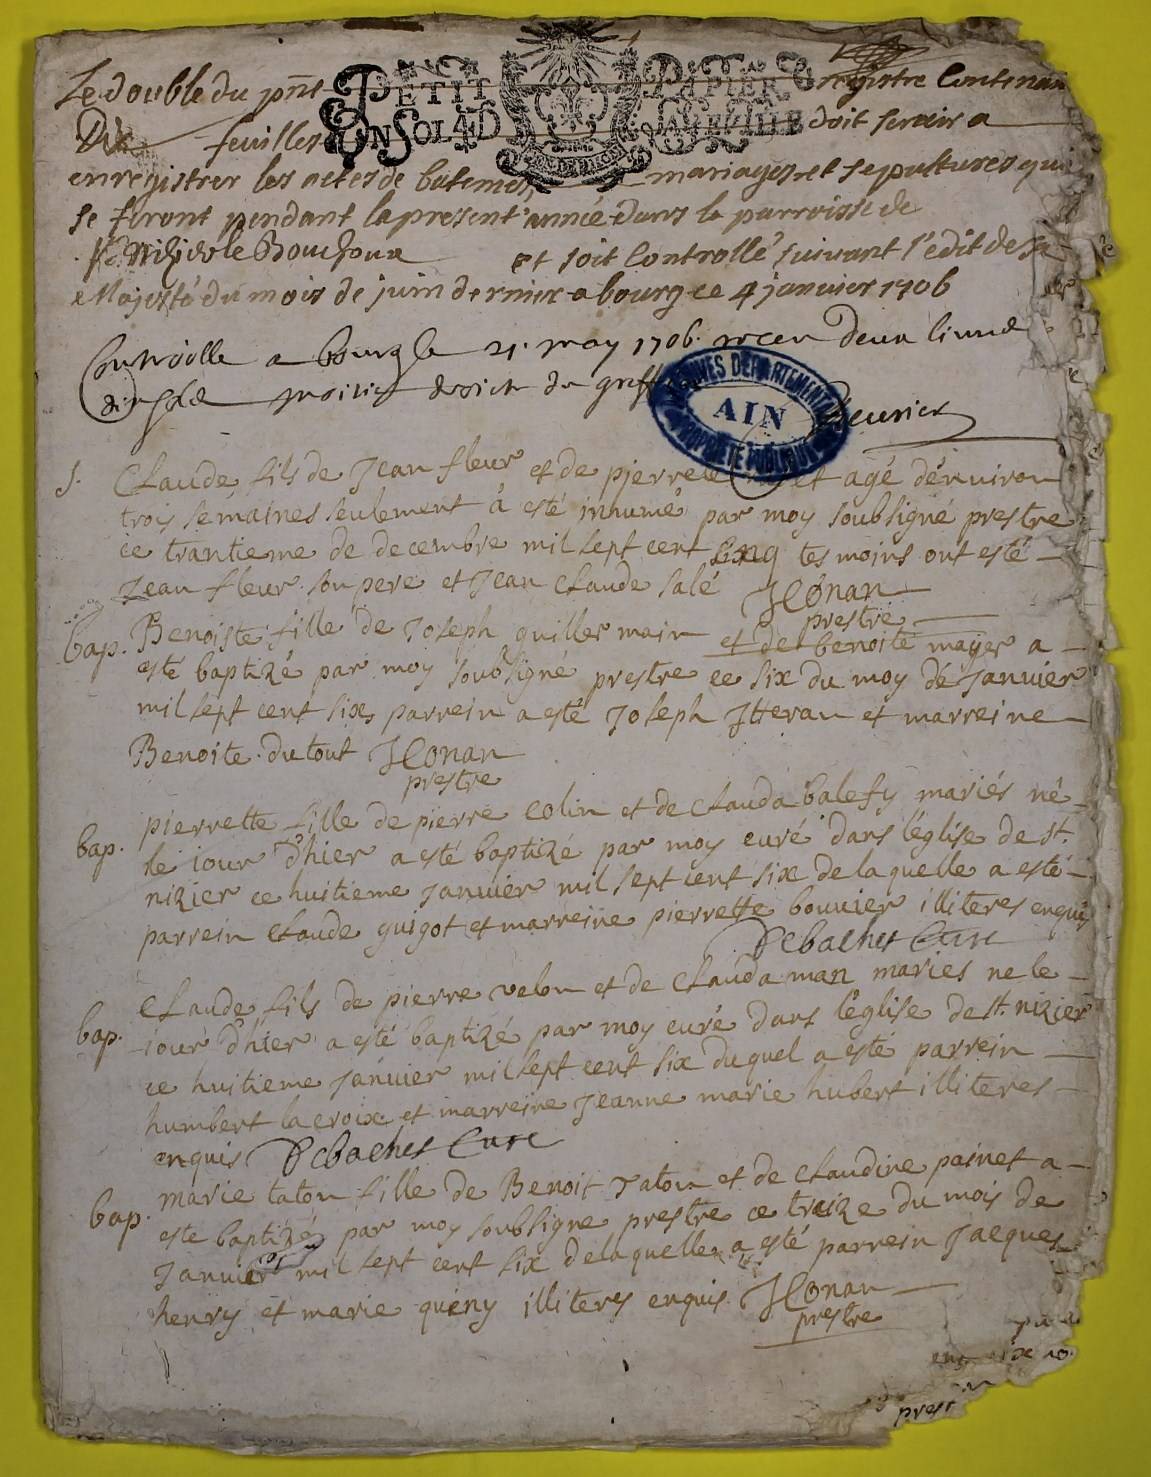 Le double du pnt registre contenan
Dix feuilles doit servir a
PETIT PAPIER
enregistrer les actes de batemes mariages et sepultures qui
se feront pendant la present année dans la parroisse de
St Nizier le Bouchoux et soit Controllé suivant l'edit de sa
Majesté du mois de juin dernier a bourg ce 4 janvier 1706
Controlle a bourg le 21. may 1706. receu deux livres
dix sols moitié droict du greff
ARCHIVES DÉPARTEMENTALES
AIN
PROPRIÉTÉ PUBLIQUE
S. Claude fils de Jean fleur et de pierrette et agé d'environ
trois semaines seulement à esté inhumé par moy soubsigné prestre
ce trantieme de decembre mil sept cent cinq tesmoins ont esté
Jean fleur son pere et Jean Claude salé JConan
prestre
bap. Benoiste fille de Joseph guillermain et de benoite mayer a
esté baptizé par moy soubsigné prestre ce six du moy dé Janvier
mil sept cent six, parrein a esté Joseph et marreine
Benoite dutout JConan
prestre
bap. pierrette fille de pierre colin et de Clauda balefy mariés né
le iour d'hier a esté baptizé par moy curé dans l'église de st.
nizier ce huitieme Janvier mil sept cent six de laquelle a esté
parrein Claude guigot et marreine pierrette bouvier illiteres enquis
Debachet Curé
bap. Claude fils de pierre velon et de Clauda man mariés ne le
iour d'hier a esté baptizé par moy curé dans l'église de st. nizier
ce huitieme Janvier mil sept cent six duquel a esté parrein
humbert lacroix et marreine Jeanne marie hubert illiteres
enquis Debachet Curé
bap. marie taton fille de Benoit taton et de Claudine painet a
este baptizé par moy soubsigne prestre ce treize du mois de
Janvier mil sept cent six de laquelle a esté parrein Jacques
henry et marie quény illiteres enquis. JConan
prestre
prest